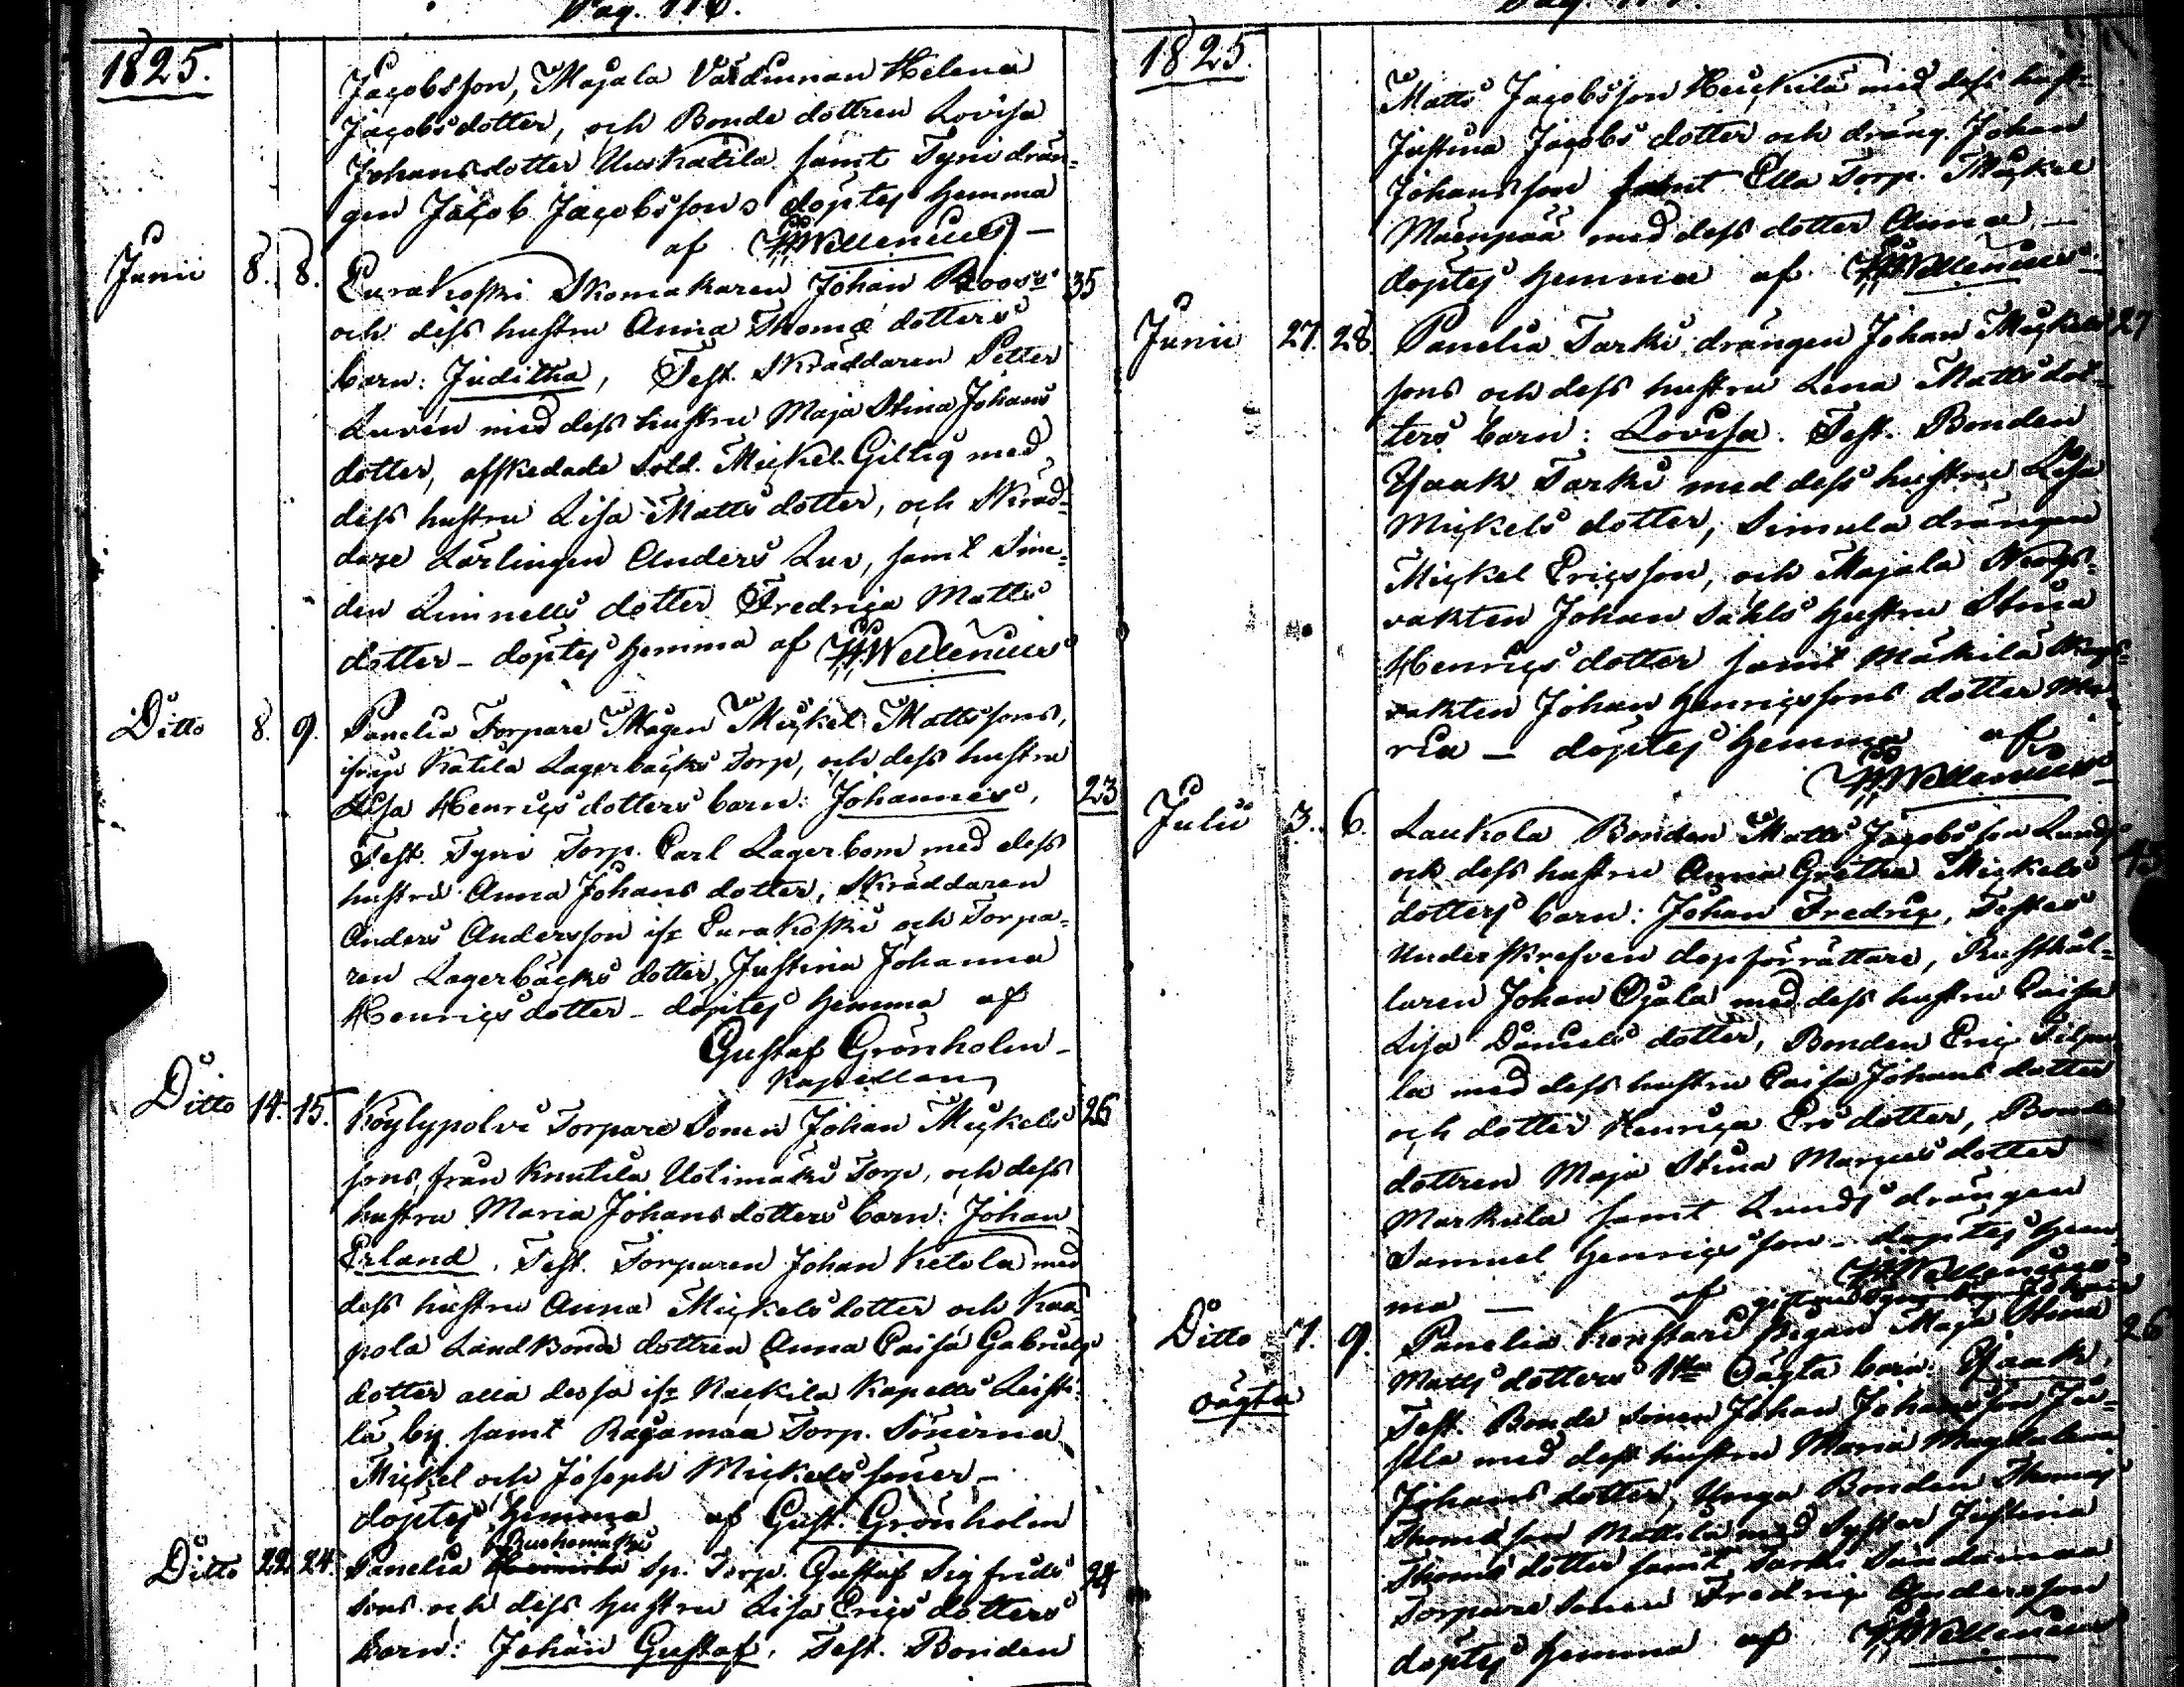 Pag. 116.
1825.
Jacobsson, Majala Värdinnan Helena
Jacobsdotter, och Bonde dottren Lovisa
Johansdotter Uuskatila samt Tyni drän-
gen Jacob Jacobsson döptes hemma
af Wellenius
Junii 8. 8. Eurakoski Skomakaren Johan Roos's 35
och dess hustru Anna Thomæ dotters
barn: Juditha, Test. Skräddaren Petter
Lurén med dess hustru Maja Stina Johans
dotter, afskedade Sold. Mickel Giltig med
dess hustru Lisa Matts dotter, och Skräd-
dare Lärlingen Anders Lur, samt
den Limnells dotter Fredrica Matts
dotter - döptes hemma af Wellenius
Ditto 8. 9. Panelia Torpare Mågen Mickel Mattssons,
ifrån Katila Lagerbäcks Torp, och dess hustru
Lisa Henrics dotters barn: Johannes, 23
Test. Tyni Torp. Carl Lagerbom med dess
hustru Anna Johans dotter, Skräddaren
Anders Andersson ifr Eurakoski och Torpa-
ren Lagerbäcks dotter Justina Johanna
Henrics dotter - döptes hemma af
Gustaf Grönholm -
Kapellan
Ditto 14. 15. Köylypolvi Torpare Sonen Johan Mickels 26
sons från Knutila Uolimäki Torp, och dess
hustru Maria Johans dotters barn: Johan
Erland. Test. Torparen Johan Ketola med
dess hustru Anna Mickels dotter och Kaa
pola Landbonde dottren Anna Caisa Gabriels
dotter alla dessa ifr Kackila Kapells Leisti-
lä by samt Rajamaa Torp. Sönerna
Mickel och Joseph Mickels söner -
döptes hemma af Gust. Grönholm
Ruohomäki
Ditto 22. 24. Panelia Sp. Torp. Gustaf Sigfrids 24
sons och dess hustru Lisa Erics dotters
barn: Johan Gustaf, Test. Bonden
1825.
Matts Jacobsson Heickilä med dess hust-
Justina Jacobs dotter och dräng. Johan
Johansson samt Ella Torp. Mickel
Mäenpää med dess dotter Anna -
döptes hemma af Wellenius
Junii 27. 28. Panelia Tarki drängen Johan Mickels 27
sons och dess hustru Lena Matts dot-
ters barn: Lovisa. Test. Bonden
Isaak Tarki med dess hustru Lisa
Mickels dotter, Simula drängen
Mickel Ericsson, och Majala Skogs-
vakten Johan Sahls hustru Stina
Henrics dotter samt Mäkilä Skogs-
vakten Johan Henricssons dotter Ma-
ria - döptes hemma af
Wellenius
Julii 3. 6. Laukola Bonden Matts Jacobsson Lunds
och dess hustru Anna Gretha Mickels
dotters barn: Johan Fredric, Testes
Underskrefven dopförrättare, Rusthål-
laren Johan Ojala med dess hustru Caisa
Lisa Daniels dotter, Bonden Eric
la med dess hustru Caisa Johans dotter
och dotter Henrica Ers dotter, Bonde
dottren Maja Stina Marcus dotter
Markula samt Lunds drängen
Samuel Henricsson - döptes hem
ma - af Wellenius
Ditto 7. 9. Panelia Konstari Pigan Maja Stina 26
Matts dotters Oägta barn: Isaak,
oägta
Test. Bonde Sonen Johan Johansson
med dess hustru Maria Magdalena
Johans dotter, Unga Bonden Thomas
Thomasson Mattila med Syster Justina
Thomæ dotter samt Tarki
Torpare Sonen Fredric Andersson
döptes hemma af Wellenius